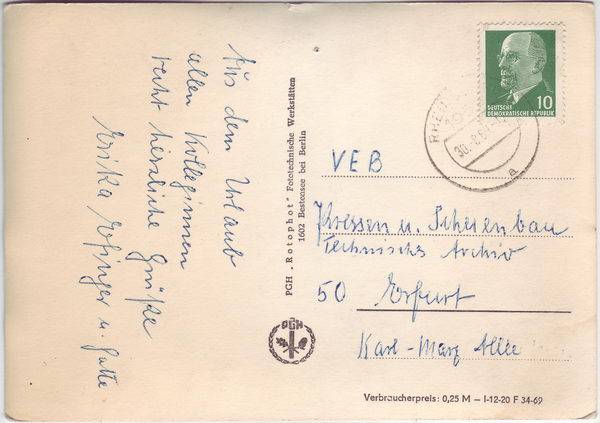 Aus dem Urlaub
allen Kolleginnen
recht herzliche Grüße
Erika u. Gatte
PGH „Rotophot“ Fototechnische Werkstätten
1602 Bestensee bei Berlin
PGH
10
DEUTSCHE
DEMOKRATISCHE REPUBLIK
a
VEB
Pressen u. Scherenbau
Technisches Archiv
50 Erfurt
Karl-Marx Allee
Verbraucherpreis: 0,25 M – I-12-20 F 34-69